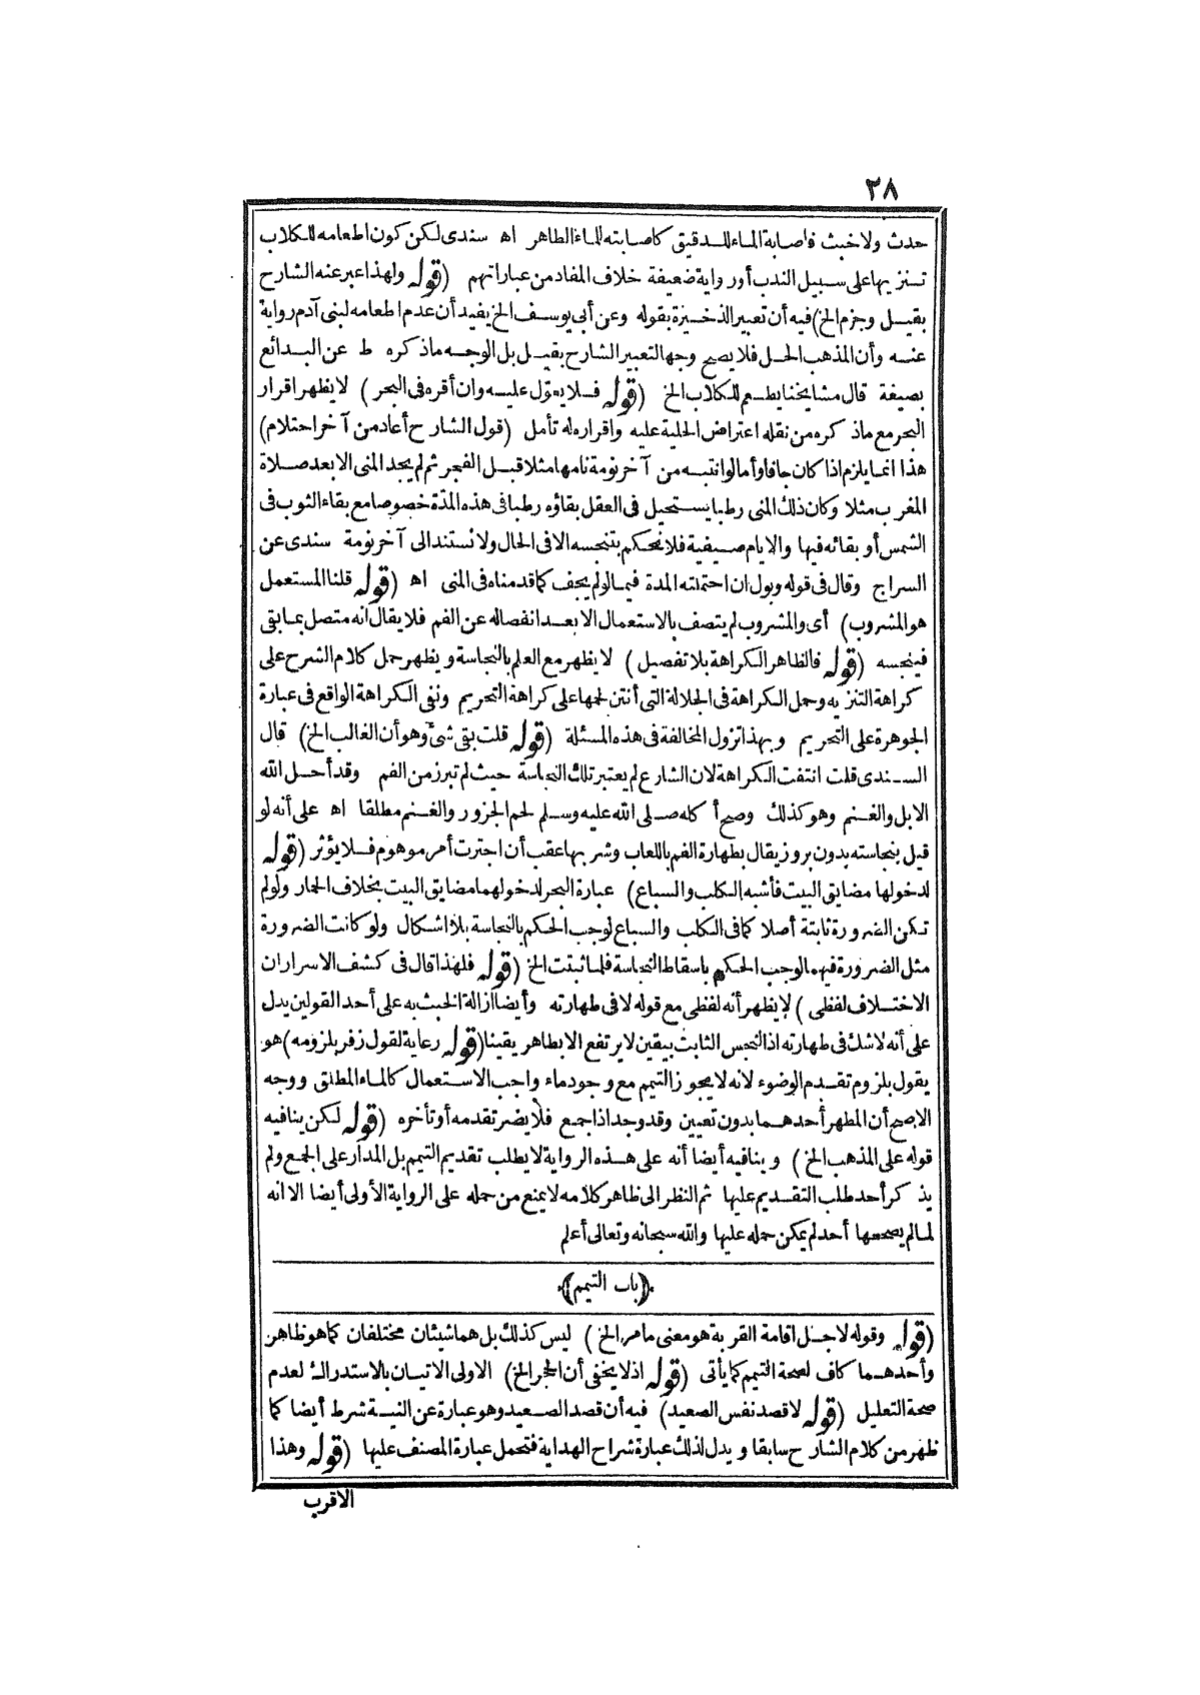 ٢٨
حدث ولا خبث فاصابة الماء للدقيق كاصابته للماء الطاهر اه سندى لكن كون اطعامه للكلاب
تنزيها على سبيل الندب أو رواية ضعيفة خلاف المفاد من عباراتهم (قوله ولهذا عبر عنه الشارح
بقيل وجزم الخ) فيه أن تعبير الذخيرة بقوله وعن أبى يوسف الخ يفيد أن عدم اطعامه لبنى آدم رواية
عنه وأن المذهب الحل فلا يصح وجها لتعبير الشارح بقيل بل الوجه ما ذكره ط عن البدائع
بصيغة قال مشايخنا يطعم للكلاب الخ (قوله فلا يعوّل عليه وان أقره فى البحر) لا يظهر اقرار
البحر مع ما ذكره من نقله اعتراض الحلية عليه واقراره له تأمل (قول الشارح أعاد من آخر احتلام)
هذا انما يلزم اذا كان جافا وأما لو انتبه من آخر نومة نامها مثلا قبل الفجر ثم لم يجد المنى الا بعد صلاة
المغرب مثلا وكان ذلك المنى رطبا يستحيل فى العقل بقاؤه رطبا فى هذه المدّة خصوصا مع بقاء الثوب فى
الشمس أو بقائه فيها والايام صيفية فلا نحكم بتنجسه الا فى الحال ولا نستند الى آخر نومة سندى عن
السراج وقال فى قوله وبول ان احتملته المدة فيما لو لم يجف كما قدمناه فى المنى اه (قوله قلنا المستعمل
هو المشروب) أى والمشروب لم يتصف بالاستعمال الا بعد انفصاله عن الفم فلا يقال انه متصل بما بقى
فينجسه (قوله فالظاهر الكراهة بلا تفصيل) لا يظهر مع العلم بالنجاسة ويظهر حمل كلام الشرح على
كراهة التنزيه وحمل الكراهة فى الجلالة التى أنتن لحمها على كراهة التحريم ونفى الكراهة الواقع فى عبارة
الجوهرة على التحريم وبهذا تزول المخالفة فى هذه المسئلة (قوله قلت بقى شئ وهو أن الغالب الخ) قال
السندى قلت انتفت الكراهة لان الشارع لم يعتبر تلك النجاسة حيث لم تبرز من الفم وقد أحل الله
الابل والغنم وهو كذلك وصح أكله صلى الله عليه وسلم لحم الجزور والغنم مطلقا اه على أنه لو
قيل بنجاسته بدون بروز يقال بطهارة الفم باللعاب وشربها عقب أن اجترت أمر موهوم فلا يؤثر (قوله
لدخولها مضايق البيت فأشبه الكلب والسباع) عبارة البحر لدخولهما مضايق البيت بخلاف الحمار ولو لم
تكن الضرورة ثابتة أصلا كما فى الكلب والسباع لوجب الحكم بالنجاسة بلا اشكال ولو كانت الضرورة
مثل الضرورة فيهما لوجب الحكم باسقاط النجاسة فلما ثبتت الخ (قوله فلهذا قال فى كشف الاسرار ان
الاختلاف لفظى) لا يظهر أنه لفظى مع قوله لا فى طهارته وأيضا ازالة الخبث به على أحد القولين يدل
على أنه لا شك فى طهارته اذ النجس الثابت بيقين لا يرتفع الا بطاهر يقينا (قوله رعاية لقول زفر بلزومه) هو
يقول بلزوم تقدم الوضوء لانه لا يجوز التيمم مع وجود ماء واجب الاستعمال كالماء المطلق ووجه
الاصح أن المطهر أحدهما بدون تعيين وقد وجد اذا جمع فلا يضر تقدمه أو تأخره (قوله لكن ينافيه
قوله على المذهب الخ) وينافيه أيضا أنه على هذه الرواية لا يطلب تقديم التيمم بل المدار على الجمع ولم
يذكر أحد طلب التقديم عليها ثم النظر الى ظاهر كلامه لا يمنع من حمله على الرواية الأولى أيضا الا انه
لما لم يصححها أحد لم يمكن حمله عليها والله سبحانه وتعالى أعلم
﴿باب التيمم﴾
(قوله وقوله لاجل اقامة القربة هو معنى ما مر الخ) ليس كذلك بل هما شيئان مختلفان كما هو ظاهر
وأحدهما كاف لصحة التيمم كما يأتى (قوله اذ لا يخفى أن الحجر الخ) الاولى الاتيان بالاستدراك لعدم
صحة التعليل (قوله لا قصد نفس الصعيد) فيه أن قصد الصعيد وهو عبارة عن النية شرط أيضا كما
ظهر من كلام الشارح سابقا ويدل لذلك عبارة شراح الهداية فتحمل عبارة المصنف عليها (قوله وهذا
الاقرب